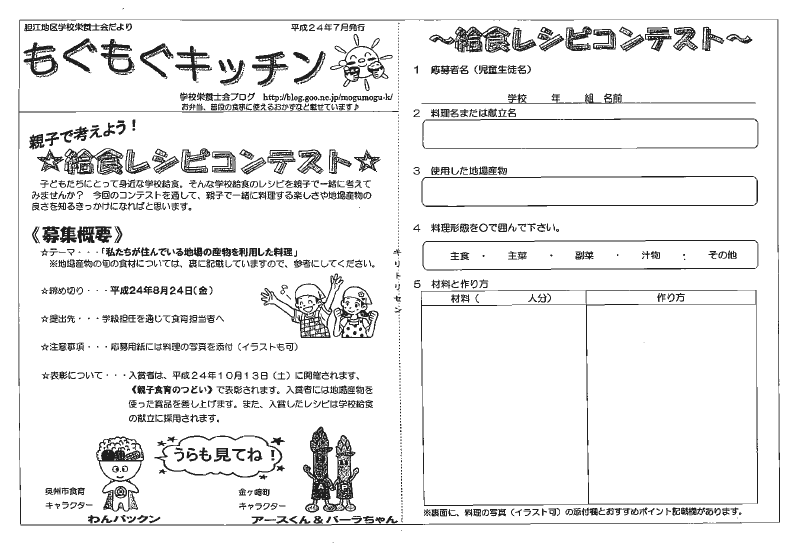 胆江地区学校栄養士会だより
平成24年7月発行
もぐもぐキッチン
学校栄養士会ブログ http://blog.goo.ne.jp/mogumogu-k/
お弁当、普段の食事に使えるおかずなど載せています♪
親子で考えよう!
☆給食レシピコンテスト☆
子どもたちにとって身近な学校給食。そんな学校給食のレシピを親子で一緒に考えて
みませんか? 今回のコンテストを通して、親子で一緒に料理する楽しさや地場産物の
良さを知るきっかけになればと思います。
《募集概要》
☆テーマ・・・「私たちが住んでいる地場の産物を利用した料理」
※地場産物の旬の食材については、裏に記載していますので、参考にしてください。
☆締め切り・・・平成24年8月24日(金)
☆提出先・・・学級担任を通じて食育担当者へ
☆注意事項・・・応募用紙には料理の写真を添付(イラストも可)
☆表彰について・・・入賞者は、平成24年10月13日(土)に開催されます、
《親子食育のつどい》で表彰されます。入賞者には地場産物を
使った賞品を差し上げます。また、入賞したレシピは学校給食
の献立に採用されます。
うらも見てね!
奥州市食育
キャラクター
わんパックン
金ヶ崎町
キャラクター
アースくん&パーラちゃん
キリトリセン
~給食レシピコンテスト~
1 応募者名(児童生徒名)
学校 年 組 名前
2 料理名または献立名
3 使用した地場産物
4 料理形態を○で囲んで下さい。
主食 ・ 主菜 ・ 副菜 ・ 汁物 ・ その他
5 材料と作り方
材料( 人分) 作り方
※裏面に、料理の写真(イラスト可)の添付欄とおすすめポイント記載欄があります。